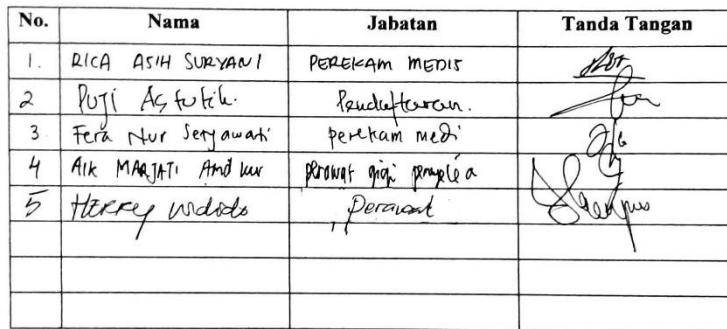 No. Nama Jabatan Tanda Tangan
1. RICA ASIH SURYANI PEREKAM MEDIS
2 Puji Astutik. Pendaftaran.
3 Fera Nur Setyawati perekam medi
4 AIK MARJATI Amd kw perawat gigi
5 Herrey widodo Perawat